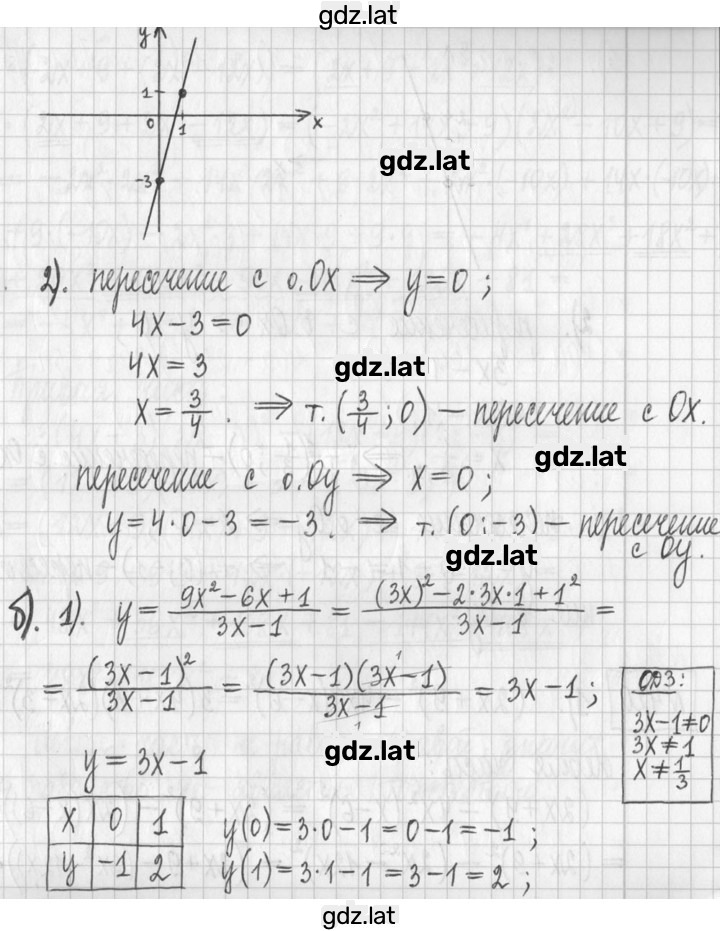 gdz.lat
y
1
0 1 x
-3
gdz.lat
2). пересечение с о.Ox ⟹ y=0;
4x-3=0
4x=3
gdz.lat
x=3/4. ⟹ т.(3/4;0) — пересечение с Ox.
gdz.lat
пересечение с о.Oy ⟹ x=0;
y=4·0-3=-3. ⟹ т.(0;-3) — пересечение
с Oy.
gdz.lat
б). 1). y=(9x²-6x+1)/(3x-1)=((3x)²-2·3x·1+1²)/(3x-1)=
=(3x-1)²/(3x-1)=(3x-1)(3x-1)/(3x-1)=3x-1;
ОДЗ:
3x-1≠0
3x≠1
x≠1/3
gdz.lat
y=3x-1
x 0 1
y -1 2
y(0)=3·0-1=0-1=-1;
y(1)=3·1-1=3-1=2;
gdz.lat